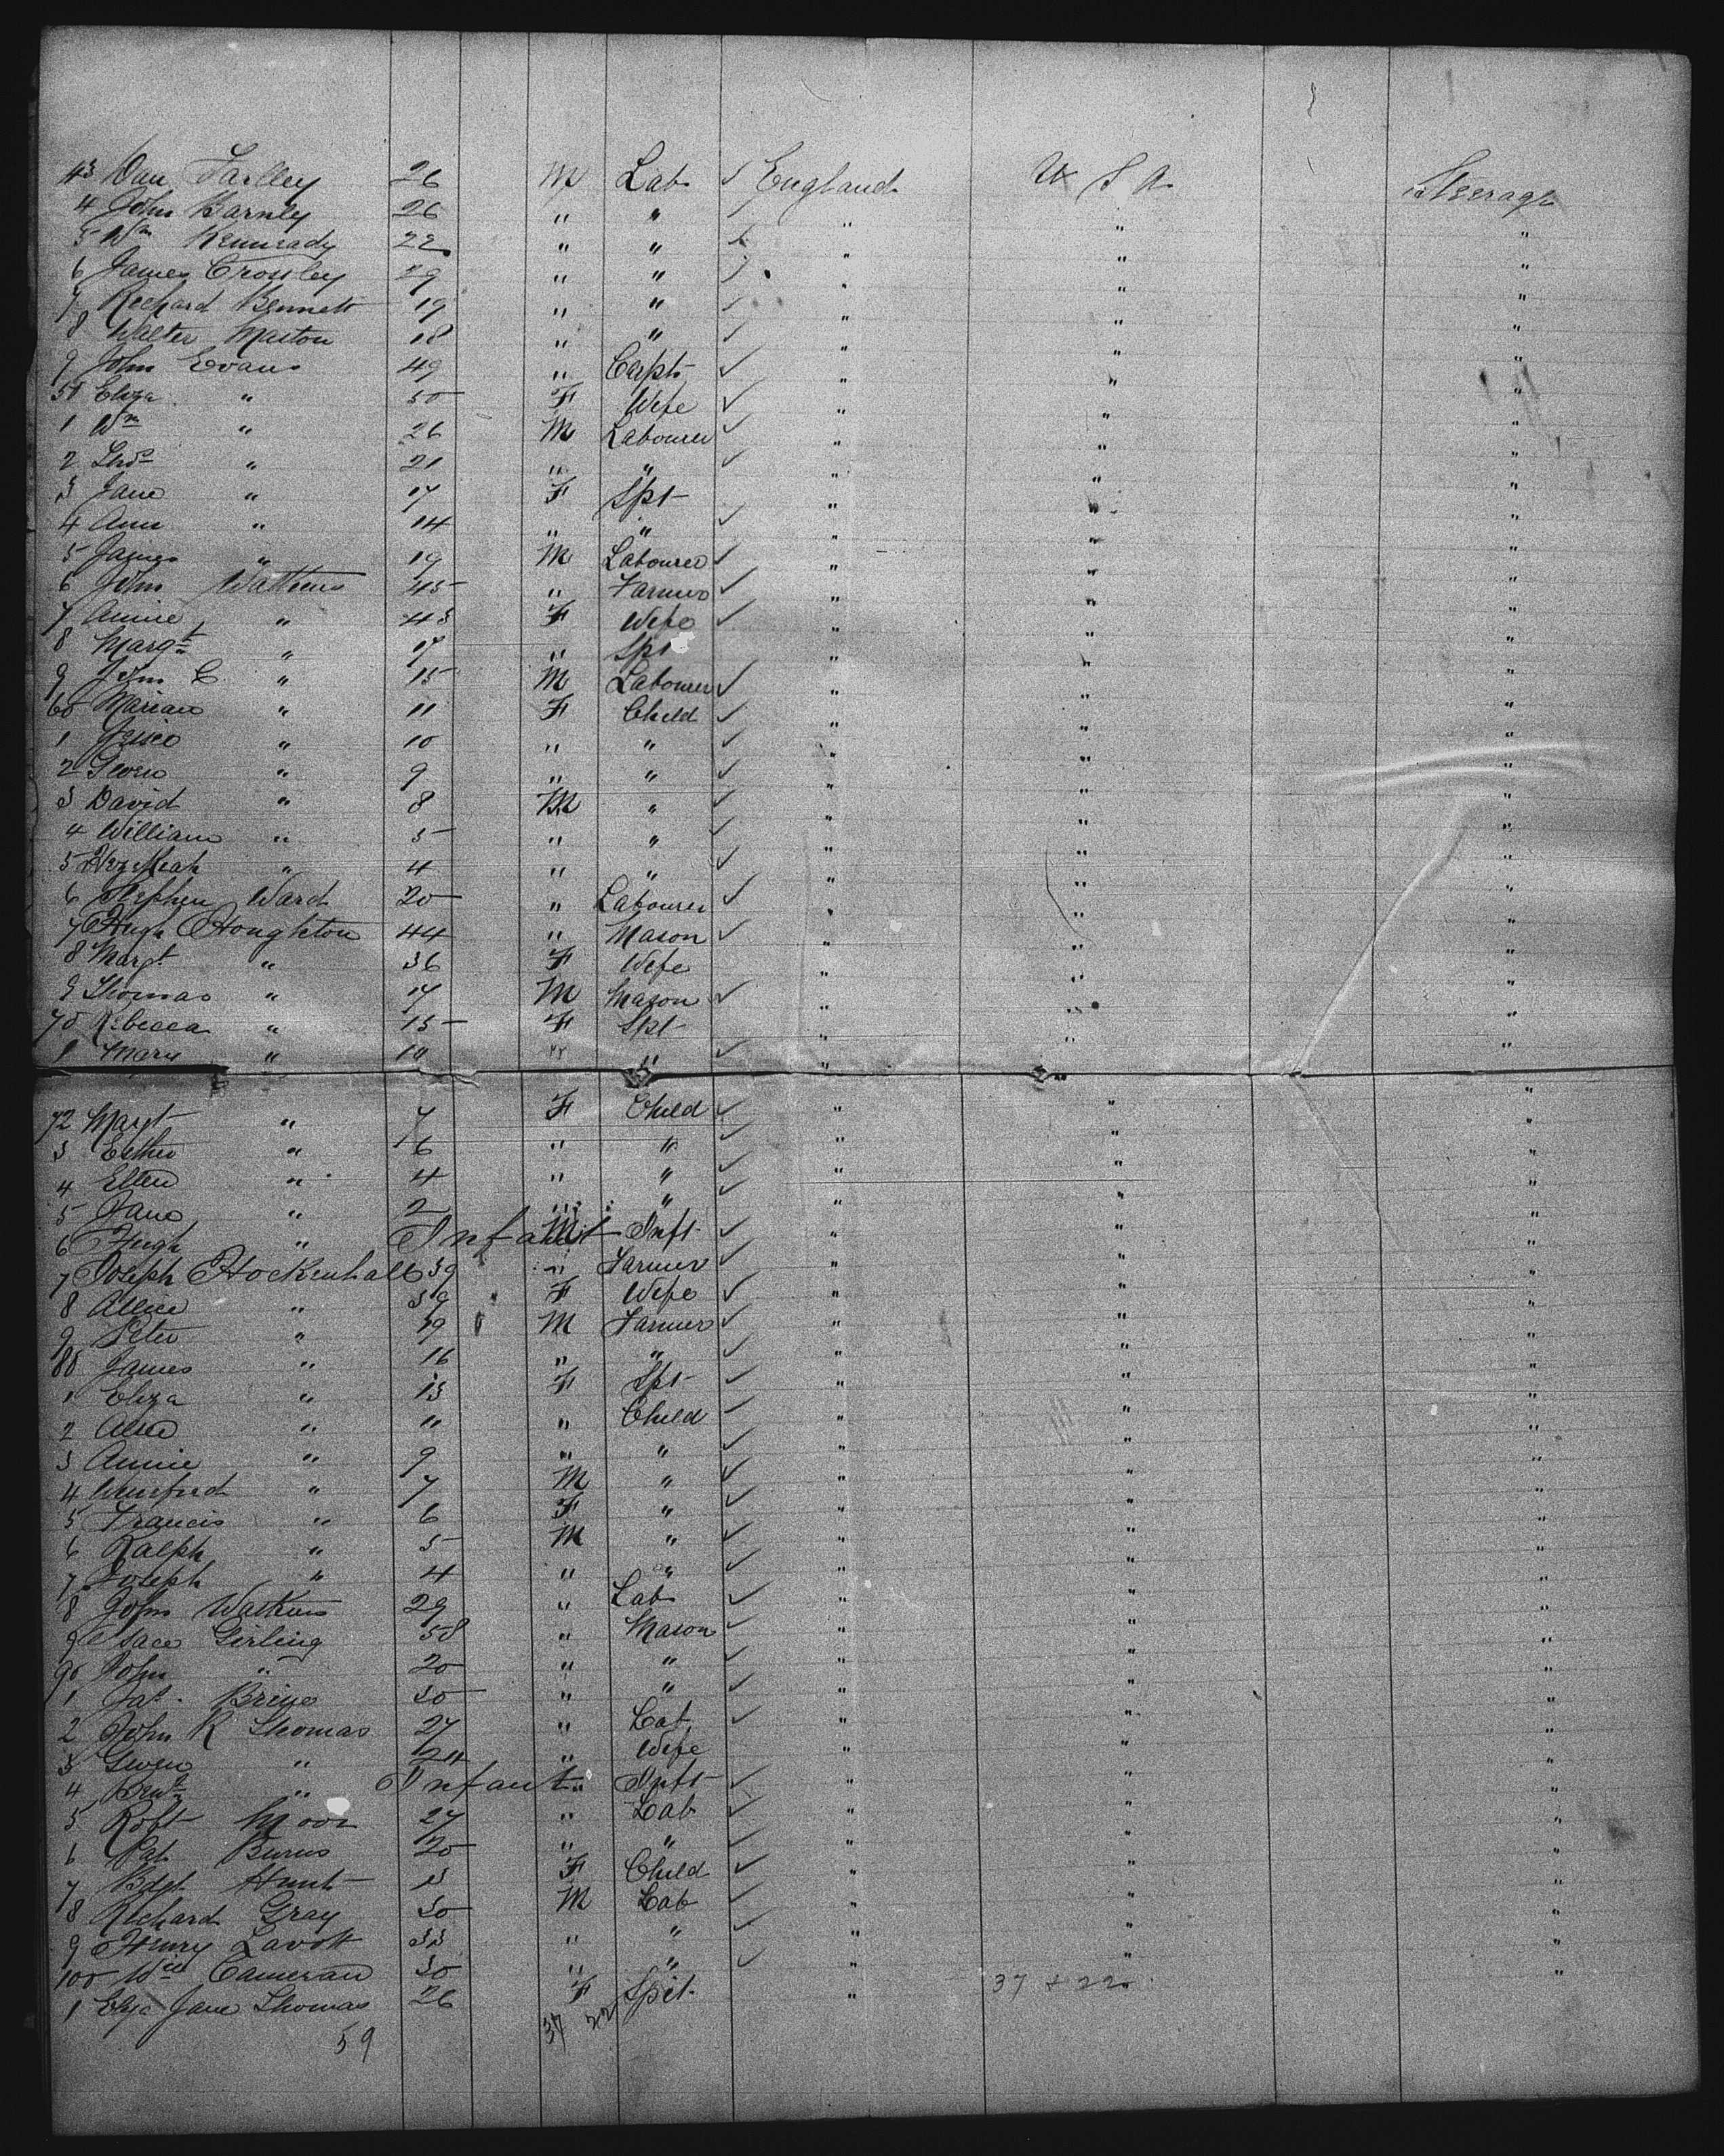 43 Dan Farlley 26 M Lab ✓ England U S A Steerage
4 John Barnley 26 " " ✓ " " "
5 Wm Kennrady 22 " " ✓ " " "
6 James Crossley 29 " " ✓ " " "
7 Richard Bennett 19 " " ✓ " " "
8 Walter Maston 18 " " ✓ " " "
9 John Evans 49 " Carpt ✓ " " "
50 Eliza " 50 F Wife ✓ " " "
1 Wm " 26 M Labourer ✓ " " "
2 Thos " 21 " " ✓ " " "
3 Jane " 17 F Spt " " "
4 Ann " 14 " " ✓ " " "
5 James " 19 M Labourer ✓ " " "
6 John Watkins 45 " Farmer ✓ " " "
7 Annie " 43 F Wife ✓ " " "
8 Margt " 17 " Spt " " "
9 John C " 15 M Labourer ✓ " " "
60 Marian " 11 F Child ✓ " " "
1 Jessee " 10 " " ✓ " " "
2 " 9 " " ✓ " " "
3 David " 8 M " ✓ " " "
4 William " 5 " " ✓ " " "
5 Hezekiah " 4 " " ✓ " " "
6 Stephen Ward 20 " Labourer ✓ " " "
7 Hugh Houghton 44 " Mason ✓ " " "
8 Margt " 36 F Wife " " "
9 Thomas " 17 M Mason ✓ " " "
70 Rebecca " 15 F Spt " " "
1 Mary " 10 " " ✓ " " "
72 Margt " 7 F Child ✓ " " "
3 Esther " 6 " " ✓ " " "
4 Ellen " 4 " " ✓ " " "
5 Jane " 2 " " ✓ " " "
6 Hugh " Infant M Inft ✓ " " "
7 Joseph Hockenhall 39 " Farmer ✓ " " "
8 Allice " 39 F Wife ✓ " " "
9 Peter " 19 M Farmer ✓ " " "
80 James " 16 " " ✓ " " "
1 Eliza " 13 F Spt ✓ " " "
2 " 11 " Child ✓ " " "
3 Annie " 9 " " ✓ " " "
4 " 7 M " ✓ " " "
5 Francis " 6 F " ✓ " " "
6 Ralph " 5 M " ✓ " " "
7 Joseph " 4 " " ✓ " " "
8 John Watkins 29 " Lab ✓ " " "
9 Isace Girling 58 " Mason ✓ " " "
90 John " 20 " " ✓ " " "
1 Jas. 30 " " ✓ " " "
2 John R Thomas 27 " Lab ✓ " " "
3 Gwen " 24 " Wife " " "
4 " Infant " Inft ✓ " " "
5 Robt Moor 27 " Lab ✓ " " "
6 Pat Burns 20 " " ✓ " " "
7 Bdgt Hunt F Child ✓ " " "
8 Richard Gray 30 M Lab ✓ " " "
9 Henry Lavott 33 " " ✓ " " "
100 Cameran 30 " " ✓ " " "
1 Eliza Jane Thomas 26 F Spit " 37 + 22
59 37 22